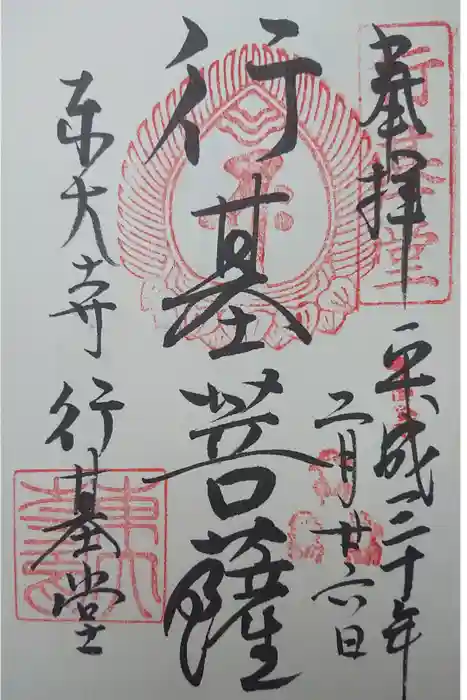 奉拝
平成三十年
二月廿六日
行基菩薩
東大寺
行基堂
行基堂